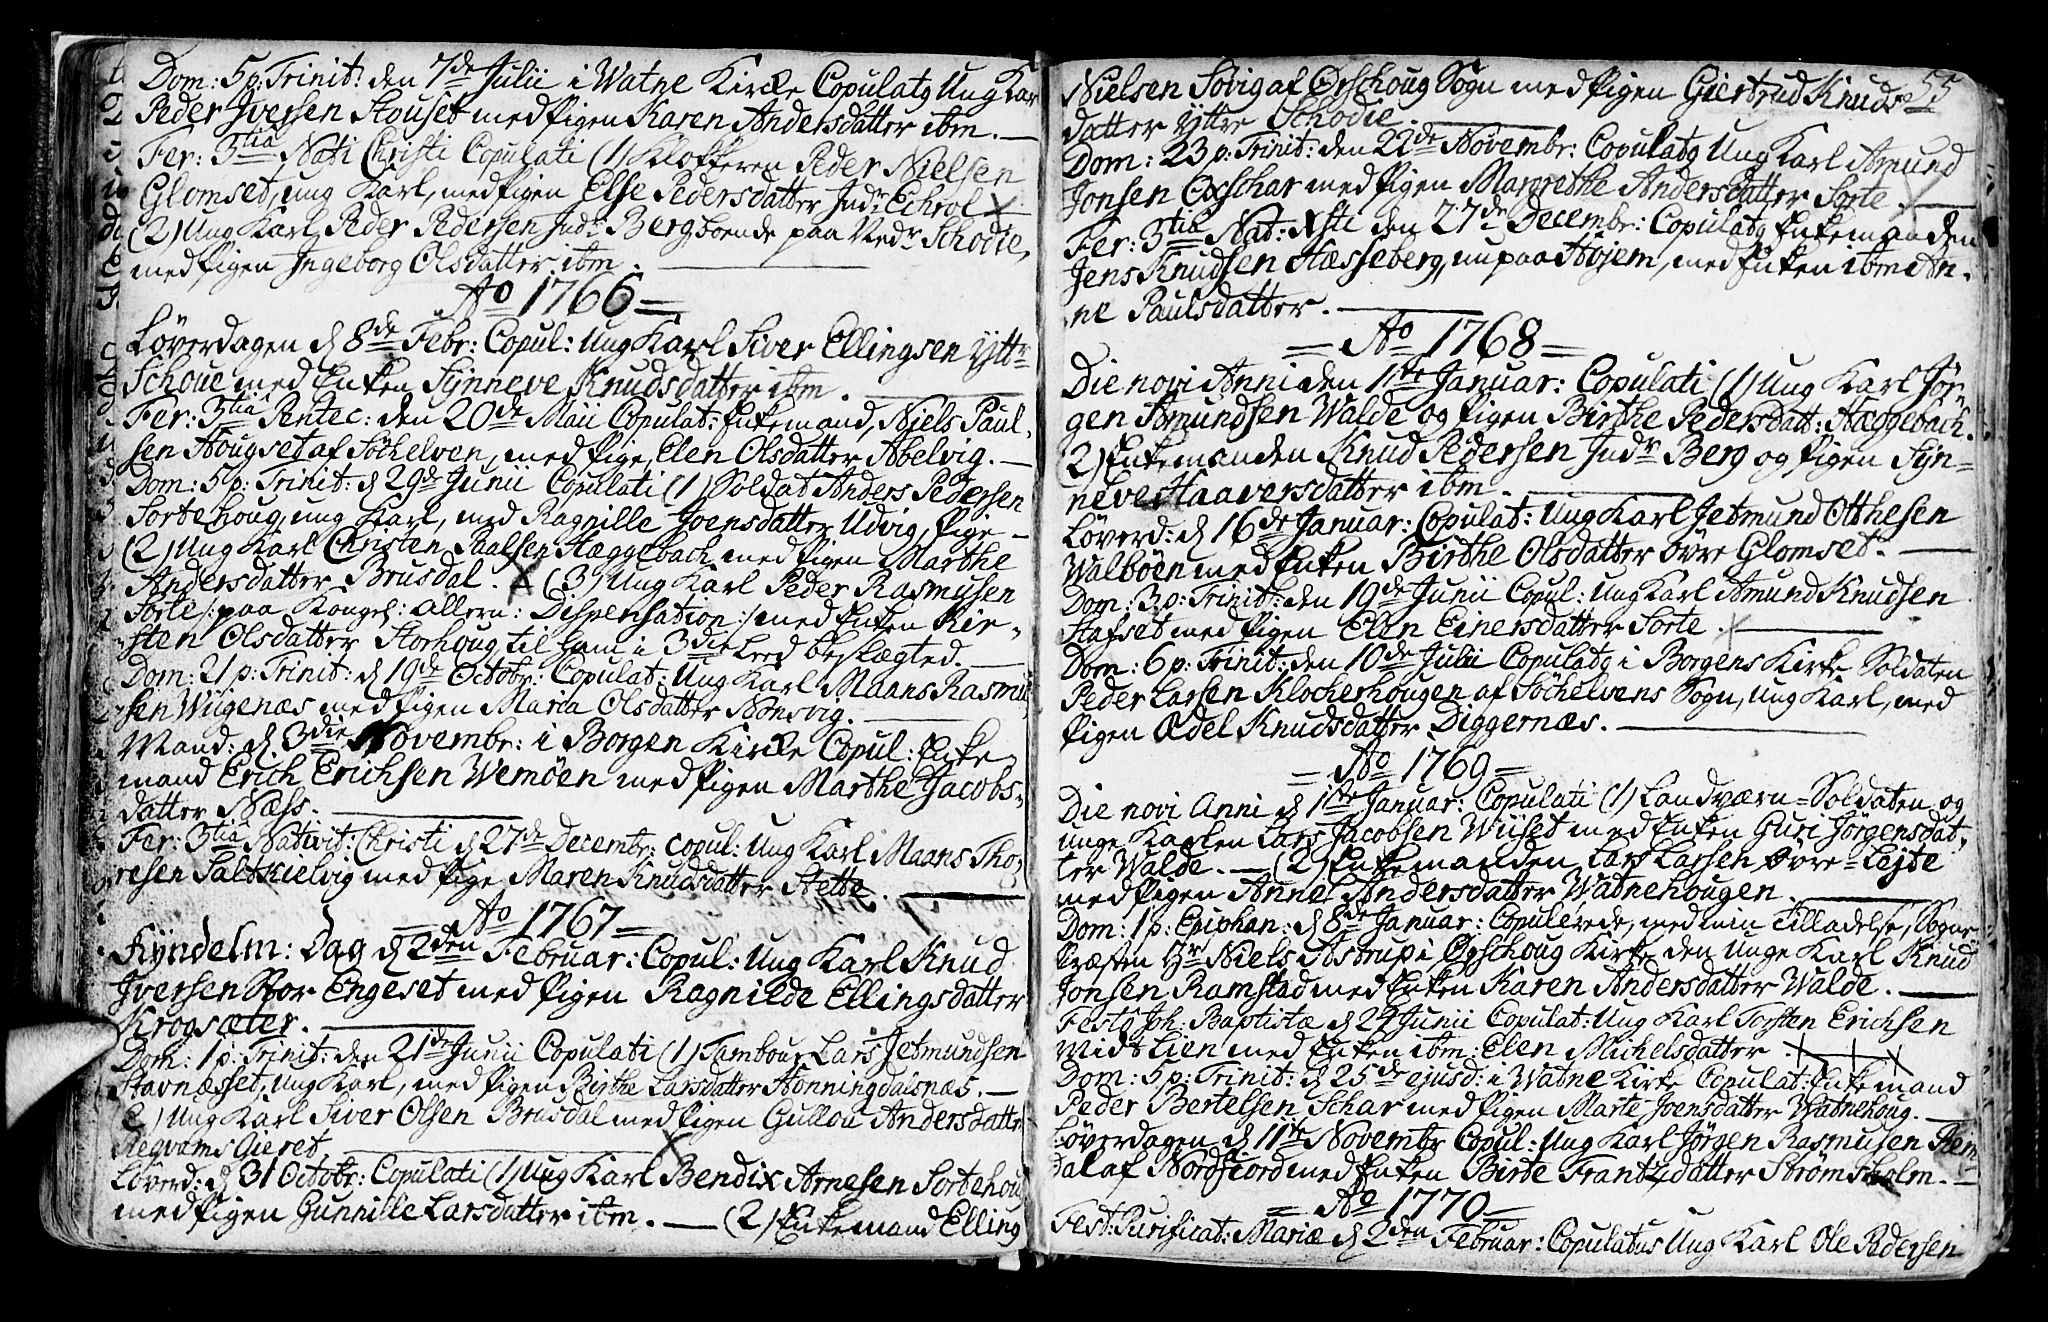 Dom: 5 p: Trinit: den 7de Julii i Watne Kirke Copulatq Ung Kar
Peder Iversen Stouset med Pigen Karen Andersdatter ibm. —
Fer: 3tia Nati Christi Copulati (1) Klokkeren Peder Nielsen
Glomset, ung Karl, med Pigen Else Pedersdatter Indr: Echrol
(2) Ung Karl Peder Pedersen Indr: Berg boende paa Nedr Schodie,
med Pigen Ingeborg Olsdatter ibm. —
Ao 1766 =
Løverdagen d 8de Febr: Copul: Ung Karl Siver Ellingsen Yttr
Schoue med Enken Synneve Knudsdatter ibm. —
Fer: 3tia Pentec: den 20de Maii Copulat: Enkemand, Niels Paul-
sen Hougset af Søchelven, med Pige, Elen Olsdatter Abelvig. —
Dom: 5 p: Trinit: d 29de Junii Copulati (1) Soldat Anders Pedersen
Sortehoug, ung Karl, med Ragnille Joensdatter Udvig, Pige —
(2) Ung Karl Christen Paulsen Hæggebach med Pigen Marthe
Andersdatter Brusdal. (3) Ung Karl Peder Rasmusen
Sorte /: paa Kongel: allern: Dispensation :/ med Enken Kir-
sten Olsdatter Storhoug til ham i 3die Leed beslægted. —
Dom: 21 p: Trinit: d 19de Octobr: Copulat: Ung Karl Maans Rasmu
sen Wiigenæs med Pigen Maria Olsdatter Nonsvig. —
Mand: d 3die Novembr: i Borgen Kirke Copul: Enke
mand Erich Erichsen Wemøen med Pigen Marthe Jacobs-
datter Næss. —
Fer: 3tia Nativit: Christi d 27de Decembr: copul: Ung Karl Maans Tho
resen Saltkielvig med Pige Maren Knudsdatter Hette. —
Ao 1767 =
Kyndelm: Dag d 2den Februar: Copul: Ung Karl Knud
Iversen Stor Engeset med Pigen Ragnilde Ellingsdatter
Krogsæter. —
Dom: 1 p: Trinit: den 21de Junii Copulati (1) Tambour Lars Jetmundsen
Stavnesset, ung Karl, med Pigen Birthe Larsdatter Honningdalsnæs. —
2) Ung Karl Siver Olsen Brusdal med Pigen Gullou Andersdatter
Løverd: d 31 Octobr: Copulati (1) Ung Karl Bendix Arnesen Sortehou
med Pigen Gunnille Larsdatter ibm. — (2) Enkemand Elling
55
Nielsen Søvig af Ørschoug Sogn med Pigen Giertrud Knuds-
datter Yttre Schodie. —
Dom: 23 p: Trinit: den 22de Novembr: Copulatq Ung Karl Amund
Jonsen Oxschar med Pigen Margrethe Andersdatter Sorte. —
Fer: 3tia Nat: Xsti den 27de Decembr: Copulatq Enkemanden
Jens Knudsen Hæsseberg, nu paa Hojem, med Enken ibm An-
ne Paulsdatter. —
= Ao 1768 =
Die novi Anni den 1te Januar: Copulati (1) Ung Karl Jør-
gen Amundsen Walde og Pigen Birthe Pedersdatt: Hæggebach.
2) Enkemanden Knud Pedersen Indr Berg og Pigen Syn=
neve Haaversdatter ibm. —
Løverd: d 16de Januar: Copulat: Ung Karl Jetmund Otthesen
Walbøen med Enken Birthe Olsdatter øvre Glomset. —
Dom: 3 p: Trinit: den 19de Junii Copul: Ung Karl Amund Knudsen
Hafset med Pigen Elen Einersdatter Sorte. —
Dom: 6 p: Trinit: den 10de Julii Copulatq i Borgens Kirke Soldaten
Peder Larsen Klocherhougen af Søchelvens Sogn, ung Karl, med
Pigen Ædel Knudsdatter Diggernæs. —
= Ao 1769 =
Die novi Anni d 1te Januar: Copulati (1) Landværn=Soldaten og
unge Karlen Lars Jacobsen Wiiset med Enken Guri Jørgensdat-
ter Walde. — (2) Enkemanden Lars Larsen Søre=Lejte
med Pigen Anne Andersdatter Watnehougen. —
Dom: 1 p: Epiphan: d 8de Januar: Copulerede, med min Tilladelse, Sogne
Præsten Hr Niels Astrup i Ørschoug Kirke den unge Karl Knud
Jonsen Ramstad med Enken Karen Andersdatter Walde. —
Festq Joh: Baptistæ d 24 Junii Copulat: Ung Karl Torsten Erichsen
Midt Lien med Enken ibm: Elen Michelsdatter.
Dom: 5 p: Trinit: d 25de ejusd: i Watne Kirke Copulat: Enkemand
Peder Bertelsen Schar med Pigen Marte Joensdatter Watnehoug. —
Løverdagen d 11te Novembr Copul: Ung Karl Jørgen Rasmusen Rem-
dal af Nordfiord med Enken Birte Frantzdatter Strømsholm. —
= Ao 1770 =
Fest: Purificat: Mariæ d 2den Februar: Copulatus Ung Karl Ole Pedersen